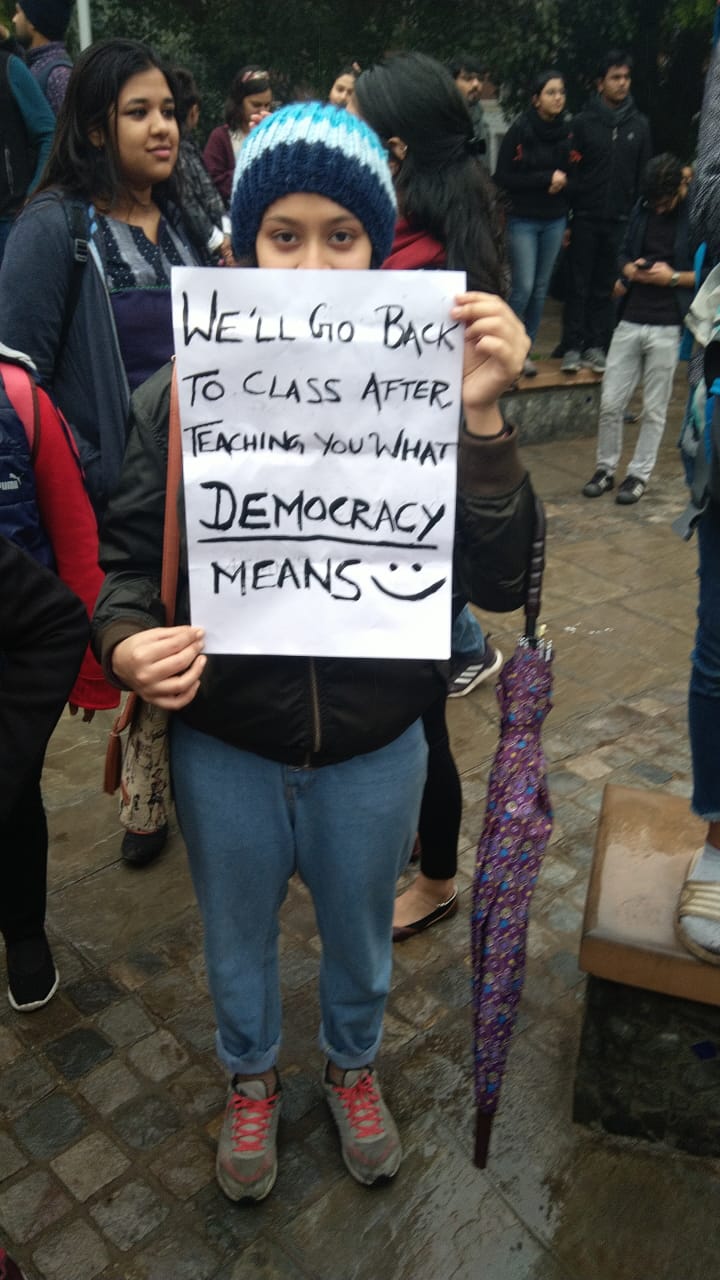 WE'LL GO BACK
TO CLASS AFTER
TEACHING YOU WHAT
DEMOCRACY
MEANS
PUMA